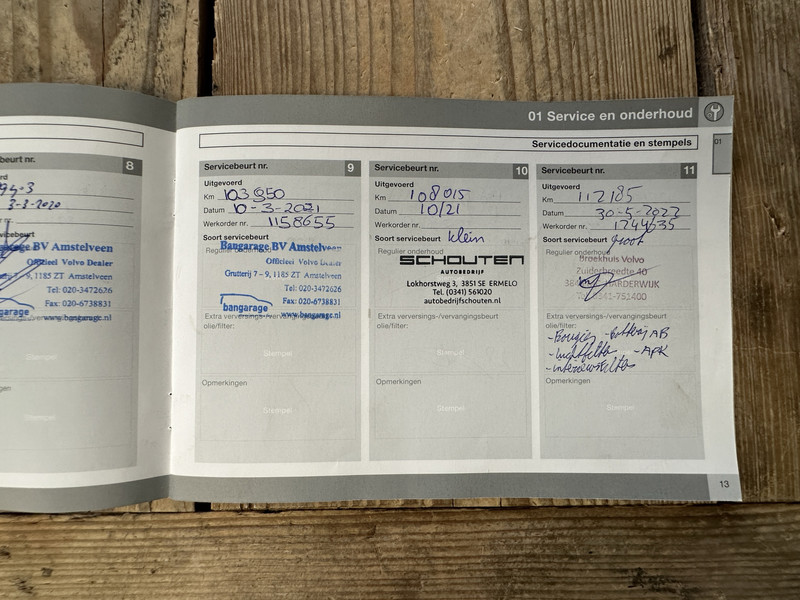 01 Service en onderhoud
Servicedocumentatie en stempels
01
beurt nr. 8
3-3-2020
BV Amstelveen
Officieel Volvo Dealer
7 – 9, 1185 ZT Amstelveen
Tel: 020-3472626
Fax: 020-6738831
www.bangarage.nl
Servicebeurt nr. 9
Uitgevoerd
Km 103950
Datum 10-3-2021
Werkorder nr. 1158655
Soort servicebeurt
Bangarage BV Amstelveen
Officieel Volvo Dealer
Grutterij 7 – 9, 1185 ZT Amstelveen
Tel: 020-3472626
Fax: 020-6738831
bangarage www.bangarage.nl
Extra verversings-/vervangingsbeurt
olie/filter:
Stempel
Opmerkingen
Stempel
Servicebeurt nr. 10
Uitgevoerd
Km 108015
Datum 10/21
Werkorder nr.
Soort servicebeurt klein
Regulier onderhoud
SCHOUTEN
AUTOBEDRIJF
Lokhorstweg 3, 3851 SE ERMELO
Tel. (0341) 561020
autobedrijfschouten.nl
Extra verversings-/vervangingsbeurt
olie/filter:
Stempel
Opmerkingen
Stempel
Servicebeurt nr. 11
Uitgevoerd
Km 112185
Datum 30-5-2022
Werkorder nr. 1244535
Soort servicebeurt groot
Regulier onderhoud
Broekhuis Volvo
Zuiderbreedte 40
HARDERWIJK
Extra verversings-/vervangingsbeurt
olie/filter:
- Bougies
- Luchtfilter - APK
- interieurfilter
Opmerkingen
Stempel
13